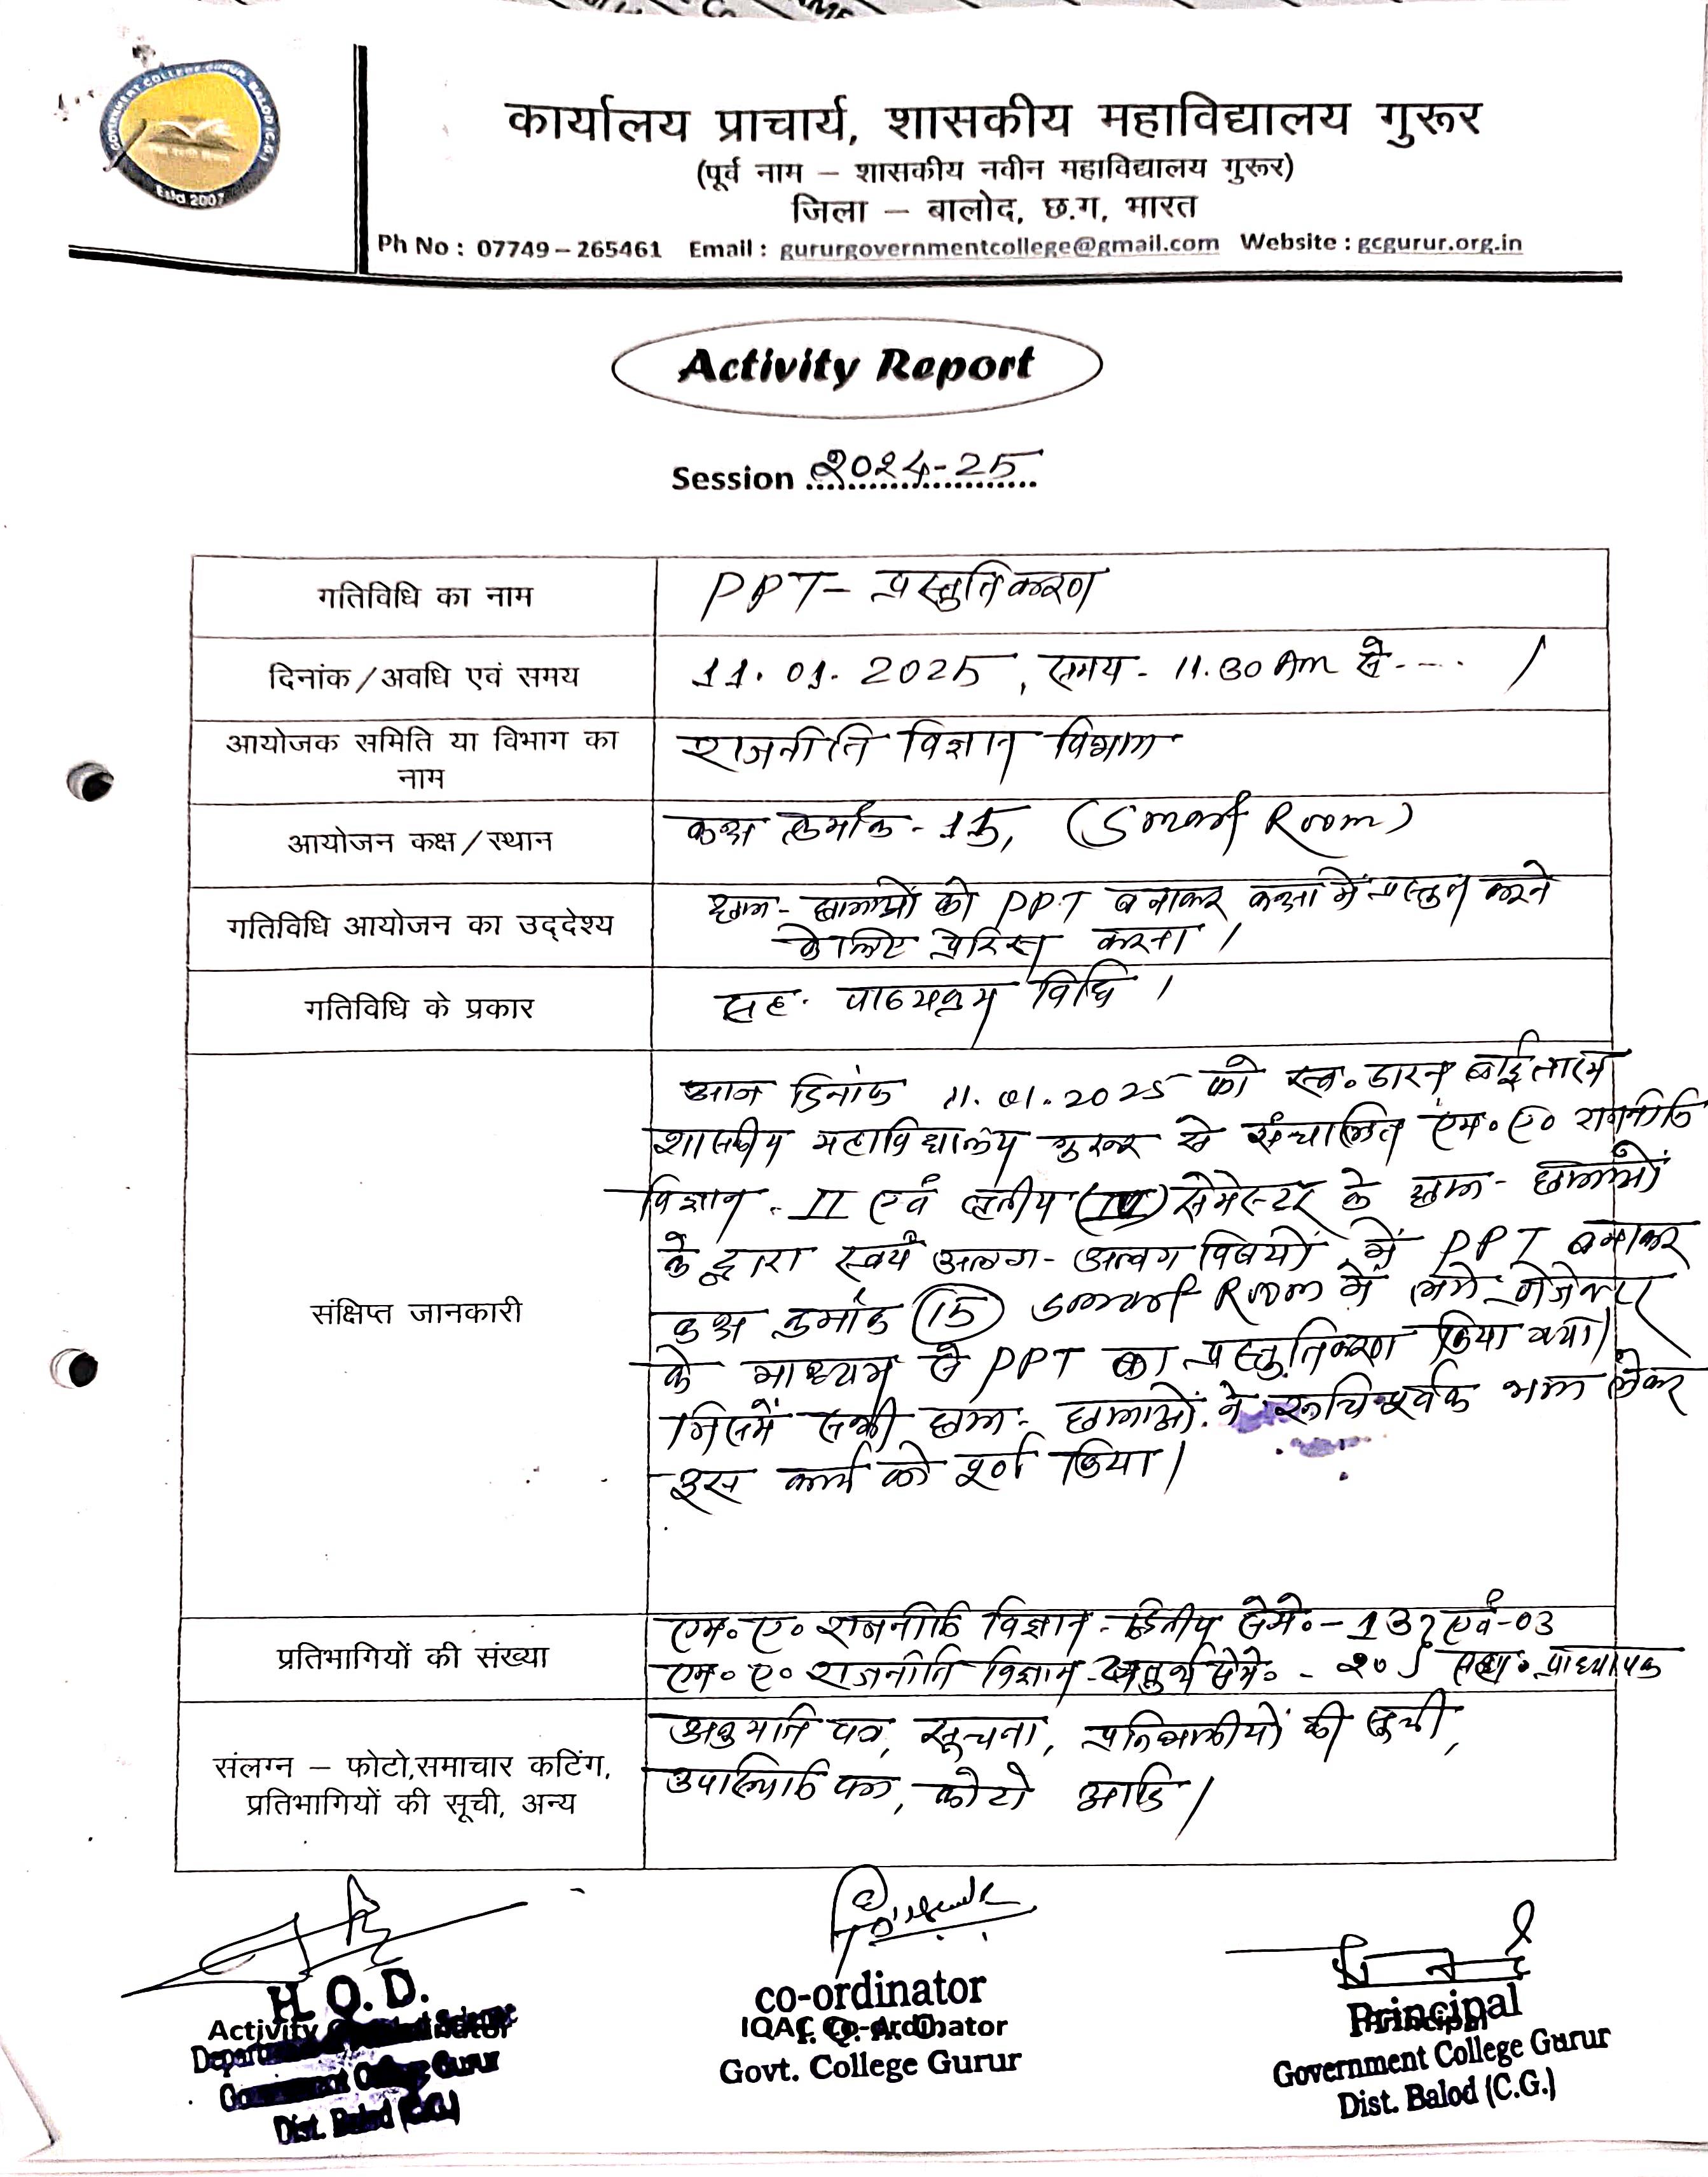 GOVERNMENT COLLEGE GURUR, BALOD (C.G.)
Estd 2007
कार्यालय प्राचार्य, शासकीय महाविद्यालय गुरूर
(पूर्व नाम – शासकीय नवीन महाविद्यालय गुरूर)
जिला – बालोद, छ.ग, भारत
Ph No : 07749 – 265461 Email : gururgovernmentcollege@gmail.com Website : gcgurur.org.in
Activity Report
Session 2024-25
गतिविधि का नाम
PPT - प्रस्तुतिकरण
दिनांक / अवधि एवं समय
11.01.2025, समय - 11.30 Am से ---- ।
आयोजक समिति या विभाग का
नाम
राजनीति विज्ञान विभाग
आयोजन कक्ष / स्थान
कक्ष क्रमांक - 15, (Smart Room)
गतिविधि आयोजन का उद्देश्य
छात्र - छात्राओं को PPT बनाकर कक्षा में प्रस्तुत करने
के लिए प्रेरित करना ।
गतिविधि के प्रकार
सह. पाठ्यक्रम विधि ।
संक्षिप्त जानकारी
आज दिनांक 11.01.2025 को स्व. बाई
शासकीय महाविद्यालय गुरूर से संचालित एम.ए. राजनीति
विज्ञान - II एवं तृतीय सेमेस्टर के छात्र - छात्राओं
के द्वारा स्वयं अलग - अलग विषयों में PPT बनाकर
कक्ष क्रमांक 15 Smart Room में लगे प्रोजेक्टर
के माध्यम से PPT का प्रस्तुतिकरण किया गया।
जिसमें सभी छात्र - छात्राओं ने रूचिपूर्वक भाग लेकर
इस कार्य को पूर्ण किया।
प्रतिभागियों की संख्या
एम. ए. राजनीति विज्ञान - द्वितीय सेमे. - 13 एवं - 03
एम. ए. राजनीति विज्ञान - चतुर्थ सेमे. - 20 सहा. प्राध्यापक
संलग्न – फोटो,समाचार कटिंग,
प्रतिभागियों की सूची, अन्य
अनुमति पत्र, सूचना, प्रतिभागीयों की सूची,
उपस्थिति पत्रक, फोटो आदि।
H. O. D.
Activity
Government College Gurur
Dist. Balod (C.G.)
co-ordinator
IQAC Co-ordinator
Govt. College Gurur
Principal
Government College Gurur
Dist. Balod (C.G.)